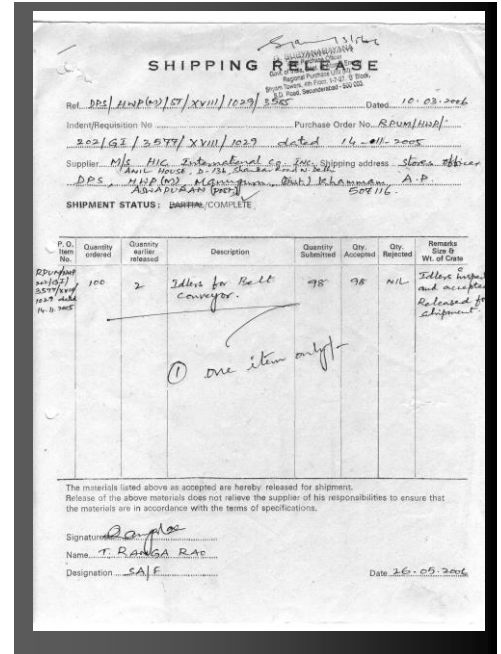 SHIPPING RELEASE
Ref. DPS/HWP(M)/ST/XVIII/1029/3565 Dated 10.03.2006
Indent/Requisition No Purchase Order No. RPUM/HWP/
202/GI/3577/XVIII/1029 dated 14-11-2005
Supplier M/s HIC International Co. INC. Shipping address Stores officer
ANIL HOUSE, D-136, Road N. Delhi
DPS, HWP(M), Manuguru, (Dist) Khammam, A.P.
507116.
SHIPMENT STATUS: PARTIAL/COMPLETE
P. O. Item No. Quantity ordered Quantity earlier released Description Quantity Submitted Qty. Accepted Qty. Rejected Remarks Size & Wt. of Crate
RPUM/HWP
202/GI/
3577/XVIII
1029 dated
14.11.2005
100 2 Idlers for Belt conveyor. 98 98 NIL
Idlers
and accepted
Released for
shipment.
1 one item only/-
The materials listed above as accepted are hereby released for shipment.
Release of the above materials does not relieve the supplier of his responsibilities to ensure that
the materials are in accordance with the terms of specifications.
Signature
Name T. RANGA RAO
Designation SA/F Date 26.05.2006